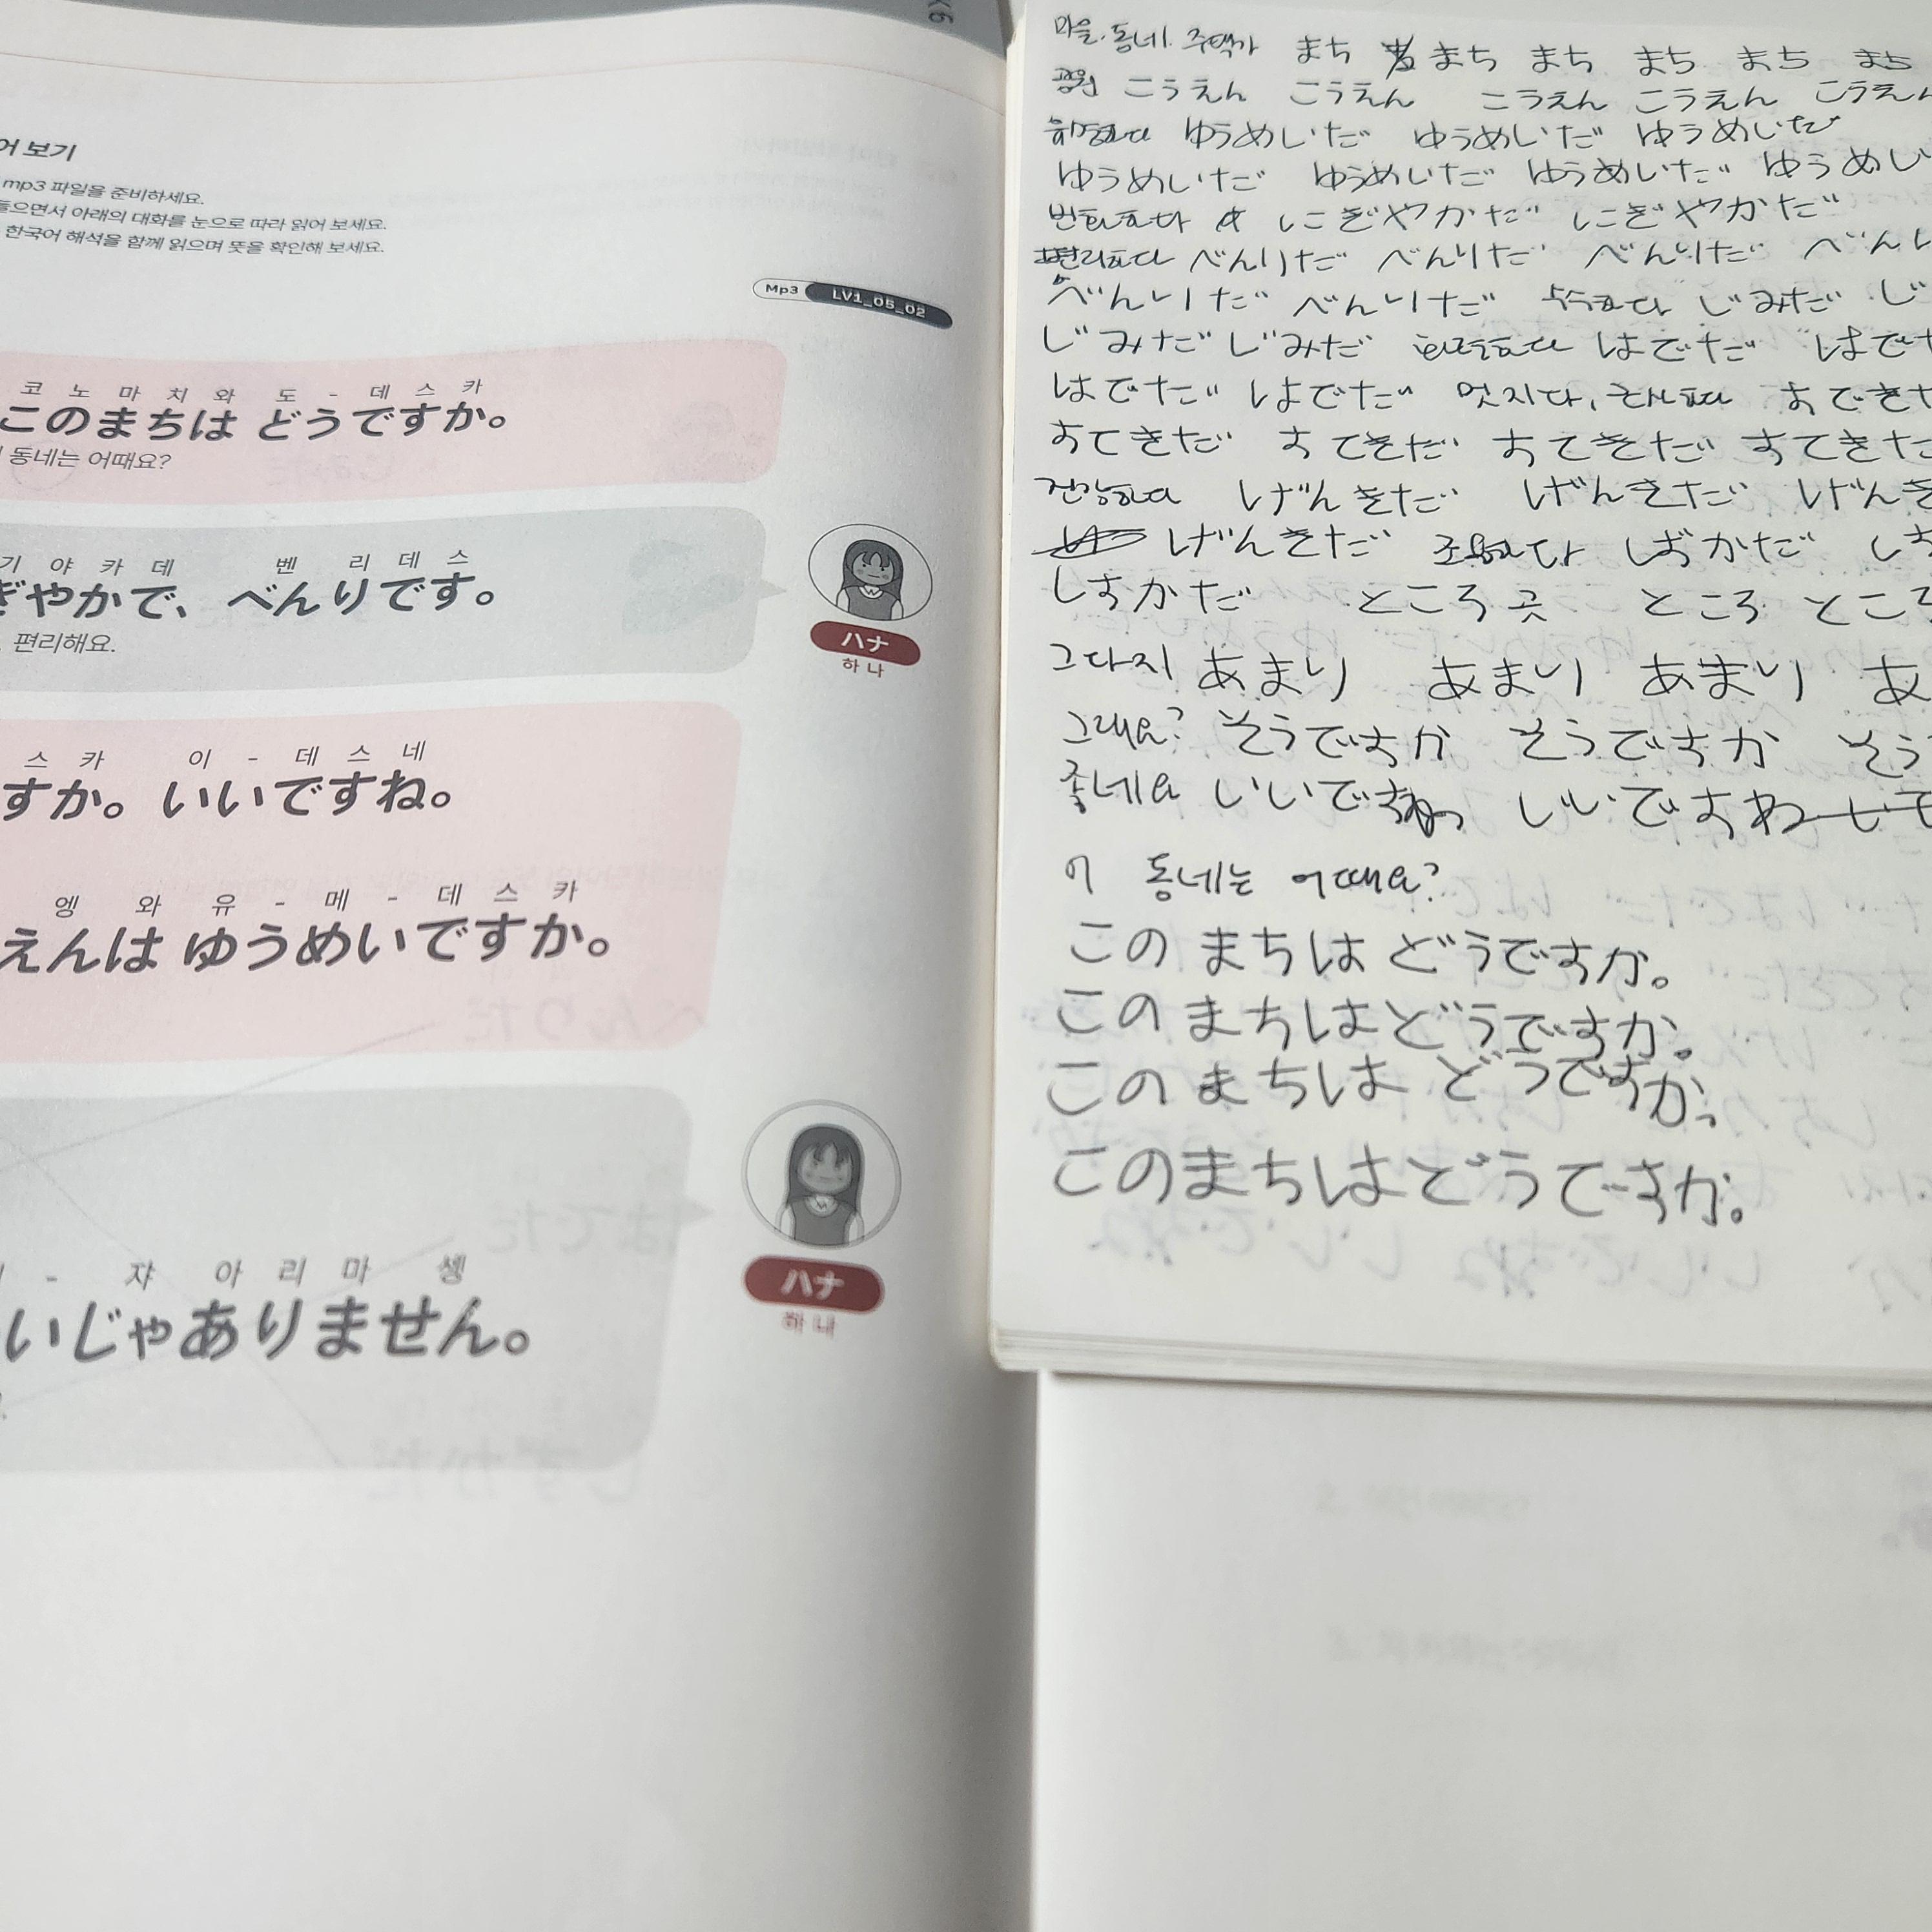 어 보기
mp3 파일을 준비하세요.
들으면서 아래의 대화를 눈으로 따라 읽어 보세요.
한국어 해석을 함께 읽으며 뜻을 확인해 보세요.
Mp3 LV1_05_02
코 노 마 치 와 도 - 데 스 카
このまちは どうですか。
동네는 어때요?
기 야 카 데 벤 리 데 스
ぎやかで、 べんりです。
편리해요.
ハナ
하나
스 카 이 - 데 스 네
すか。 いいですね。
엥 와 유 - 메 - 데 스 카
えんは ゆうめいですか。
- 쟈 아 리 마 셍
いじゃありません。
ハナ
하나
마을. 동네. 주택가 まち まち まち まち まち まち
공원 こうえん こうえん こうえん こうえん こうえん
유명하다 ゆうめいだ ゆうめいだ ゆうめいだ
ゆうめいだ ゆうめいだ ゆうめいだ ゆうめい
번화하다 にぎやかだ にぎやかだ
편리하다 べんりだ べんりだ べんりだ べんり
べんりだ べんりだ じみだ じ
じみだ じみだ 화려하다 はでだ はで
はでだ はでだ 멋지다, すできだ
すてきだ すてきだ すてきだ すてきだ
건강하다 げんきだ げんきだ げんき
げんきだ 조용하다 しずかだ し
しずかだ ところ 곳 ところ ところ
그다지 あまり あまり あまり あ
그래요? そうですか そうですか そう
좋네요 いいですね いいですね
이 동네는 어때요?
この まちは どうですか。
この まちは どうですか。
この まちは どうですか。
このまちは どうですか。